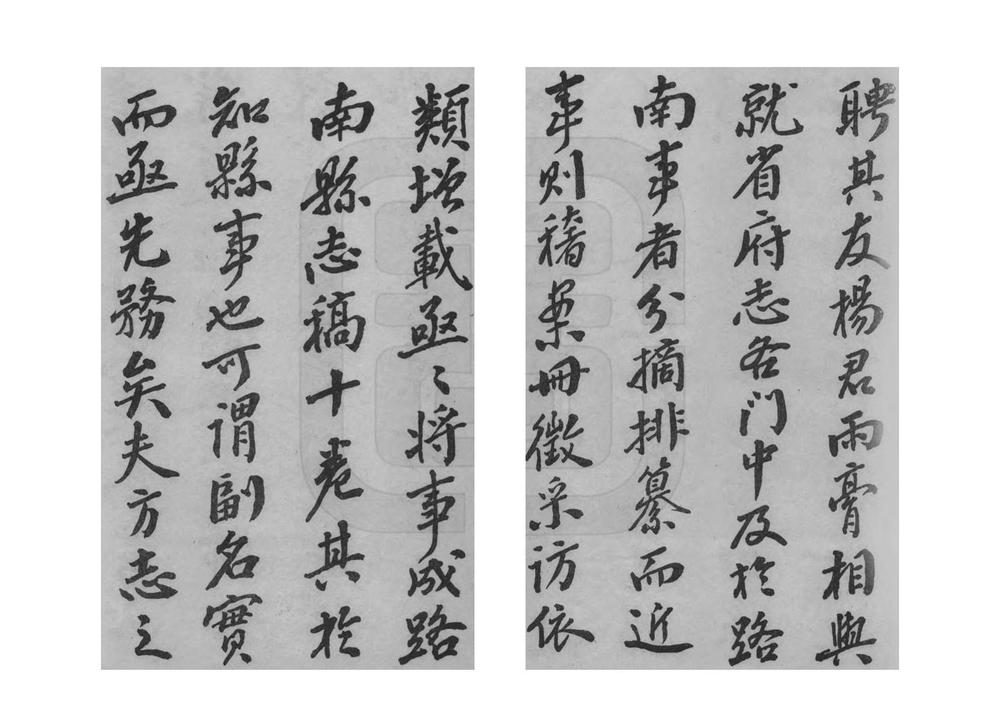 聘其友楊君雨膏相與
就省府志各門中及於路
南事者分摘排纂而近
事則稽案冊徵采訪依
類增載亟〻將事成路
南縣志稿十卷其於
知縣事也可謂副名實
而亟先務矣夫方志之